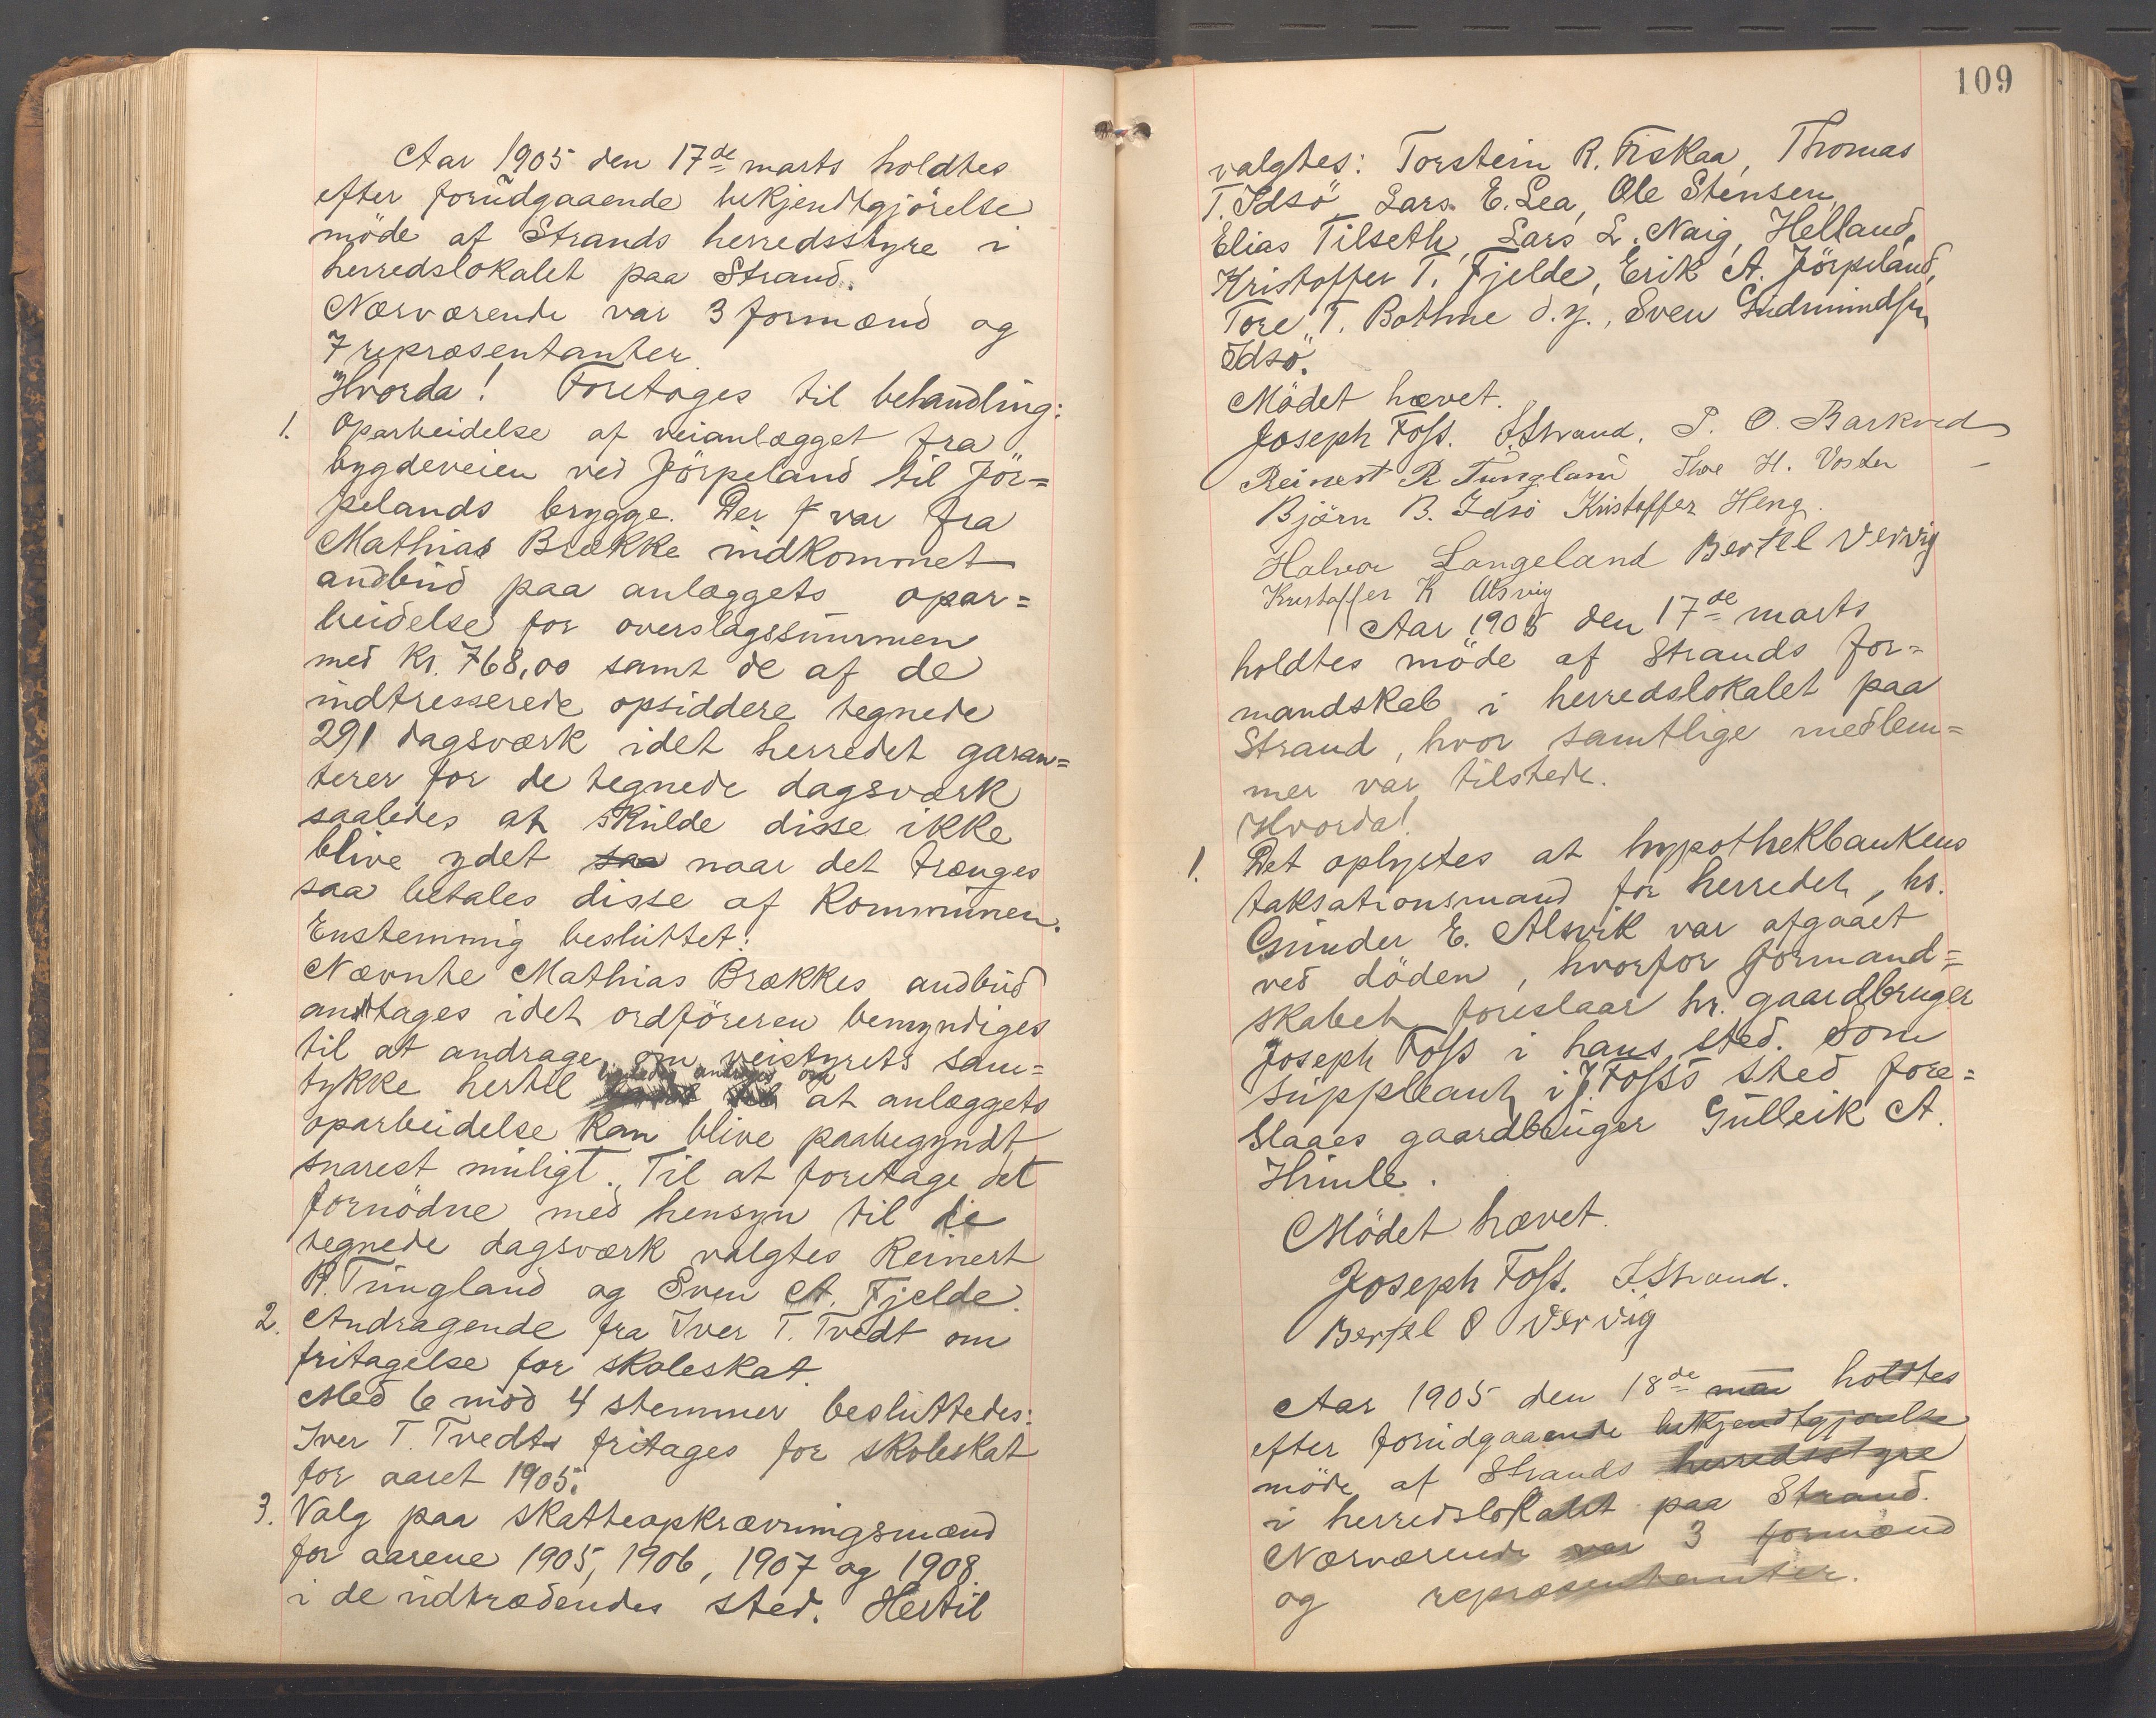 Aar 1905 den 17de marts holdtes
efter forudgaaende bekjendtgjörelse
möde af Strands herredsstyre i
herredslokalet paa Strand.
Nærværende var 3 formænd og
7 repræsentanter.
Hvorda! Foretoges til behandling:
1. Oparbeidelse af veianlægget fra
bygdeveien ved Jörpeland til Jör=
pelands brygge. Der var fra
Mathias Brække indkommet
andbud paa anlæggets opar=
beidelse for overslagssummen
med Kr. 768,00 samt de af de
indtresserede opsiddere tegnede
291 dagsværk idet herredet garan=
terer for de tegnede dagsværk
saaledes at skulde disse ikke
blive ydet saa naar det trænges
saa betales disse af Kommunen.
Enstemmig besluttet:
Nævnte Mathias Brækkes andbud
antages idet ordföreren bemyndiges
til at andrage om veistyrets sam=
tykke hertil ligeledes andrages om at anlæggets
oparbeidelse kan blive paabegyndt
snarest muligt. Til at foretage det
fornödne med hensyn til de
tegnede dagsværk valgtes Reinert
R. Tungland og Sven A. Fjelde.
2. Andragende fra Iver T. Tvedt om
fritagelse for skoleskat.
Med 6 mod 4 stemmer besluttedes:
Iver T. Tvedt fritages for skoleskat
for aaret 1905.
3. Valg paa skatteopkrævningsmænd
for aarene 1905, 1906, 1907 og 1908
i de udtrædendes sted. Hertil
109
valgtes: Torstein R. Fiskaa, Thomas
T. Idsö, Lars E. Lea, Ole Stensen,
Elias Tilseth, Lars L. Naig, Helland,
Kristoffer T. Fjelde, Erik A. Jörpeland,
Tore T. Bothne d.y., Sven Gudmundsen
Idsö.
Mödet hævet.
Joseph Foss. S. Strand. P. O. Barkved
Reinert R Tungland Thore H. Voster
Björn B. Idsö Kristoffer Heng.
Halvor Langeland Bertel Vervig
Kristoffer K Alsvig
Aar 1905 den 17de marts
holdtes möde af Strands for=
mandskab i herredslokalet paa
Strand, hvor samtlige medlem=
mer var tilstede.
Hvorda!
1. Det oplystes at hypothekbankens
taksationsmand for herredet, hr.
Gunder E. Alsvik var afgaaet
ved döden, hvorfor formand=
skabet foreslaar hr. gaardbruger
Joseph Foss i hans sted. Som
suppleant i J. Foss's sted fore=
slaaes gaardbruger Gulleik A.
Himle.
Mödet hævet.
Joseph Foss. S. Strand.
Bertel O Vervig
Aar 1905 den 18de mai holdtes
efter forudgaaende bekjendtgjörelse
möde af Strands herredsstyre
i herredslokalet paa Strand.
Nærværende var 3 formænd
og repræsentanter.